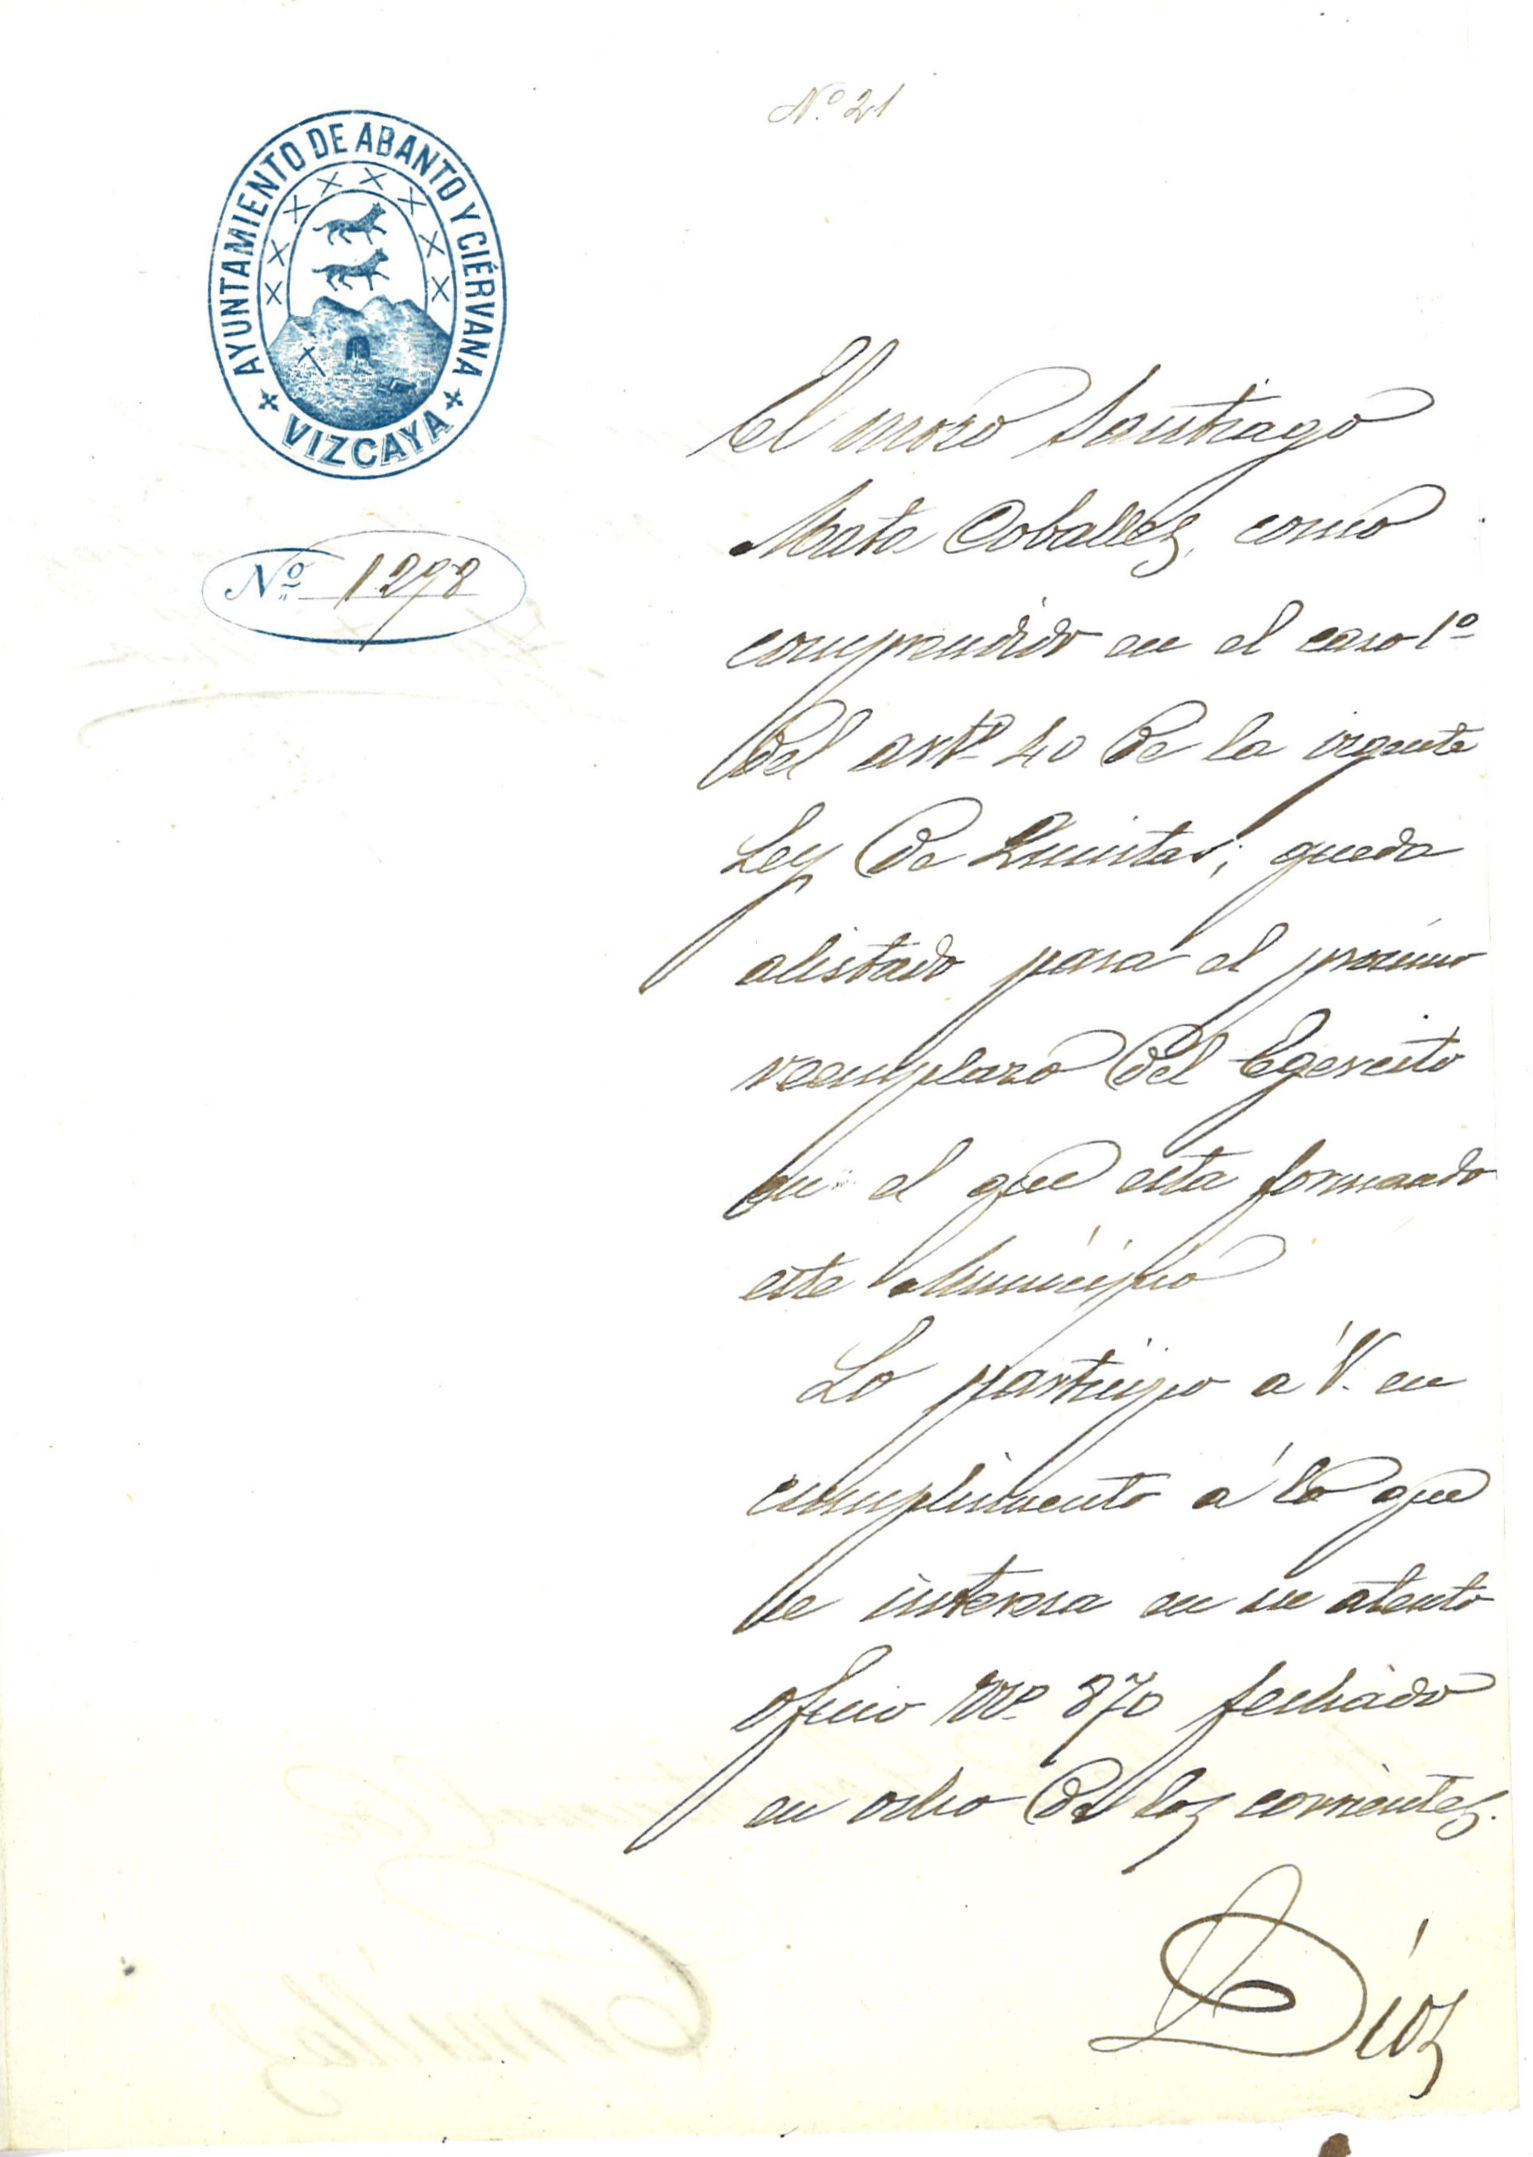 Nº 21
AYUNTAMIENTO DE ABANTO Y CIÉRVANA
VIZCAYA
Nº 1298
El mozo Santiago
Mata Coballes, como
comprendido en el caso 1º
del artº 40 de la vigente
Ley de Quintas; queda
alistado para el proximo
reemplazo del Egercito
en el que esta formando
este Municipio
Lo participo a V. en
cumplimento á lo que
se interesa en su atento
oficio nº 870 fechado
en ocho de los corrientes.
Dios
Comillas